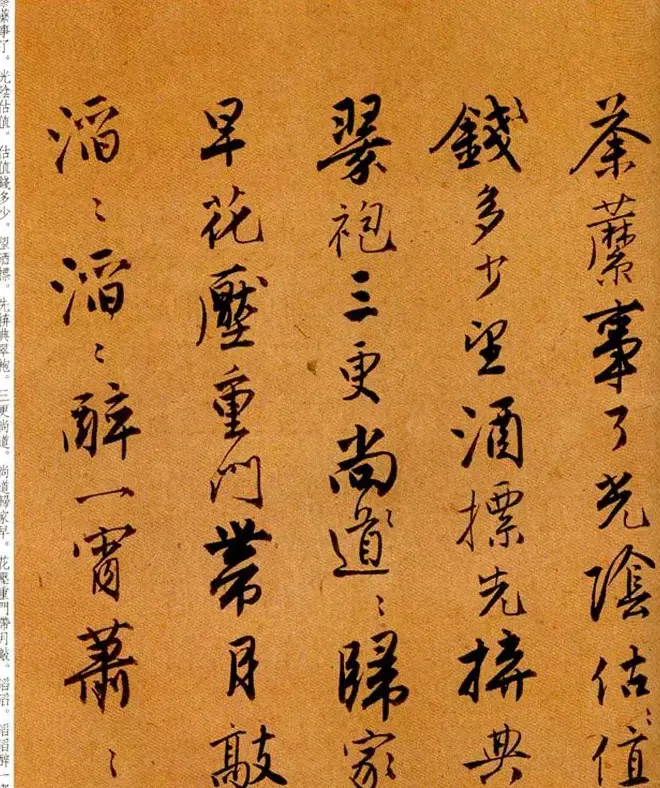 荼蘼事了光陰估〻值
〻錢多少望酒摽先拚典
翠袍三更尚〻道〻歸家
早花壓重門帶月敲
滔〻滔〻醉一宵蕭〻
蘼事了。光陰估值。估值錢多少。望酒標。先拚典翠袍。三更尚道。尚道歸家早。花壓重門帶月敲。滔滔。滔滔醉一